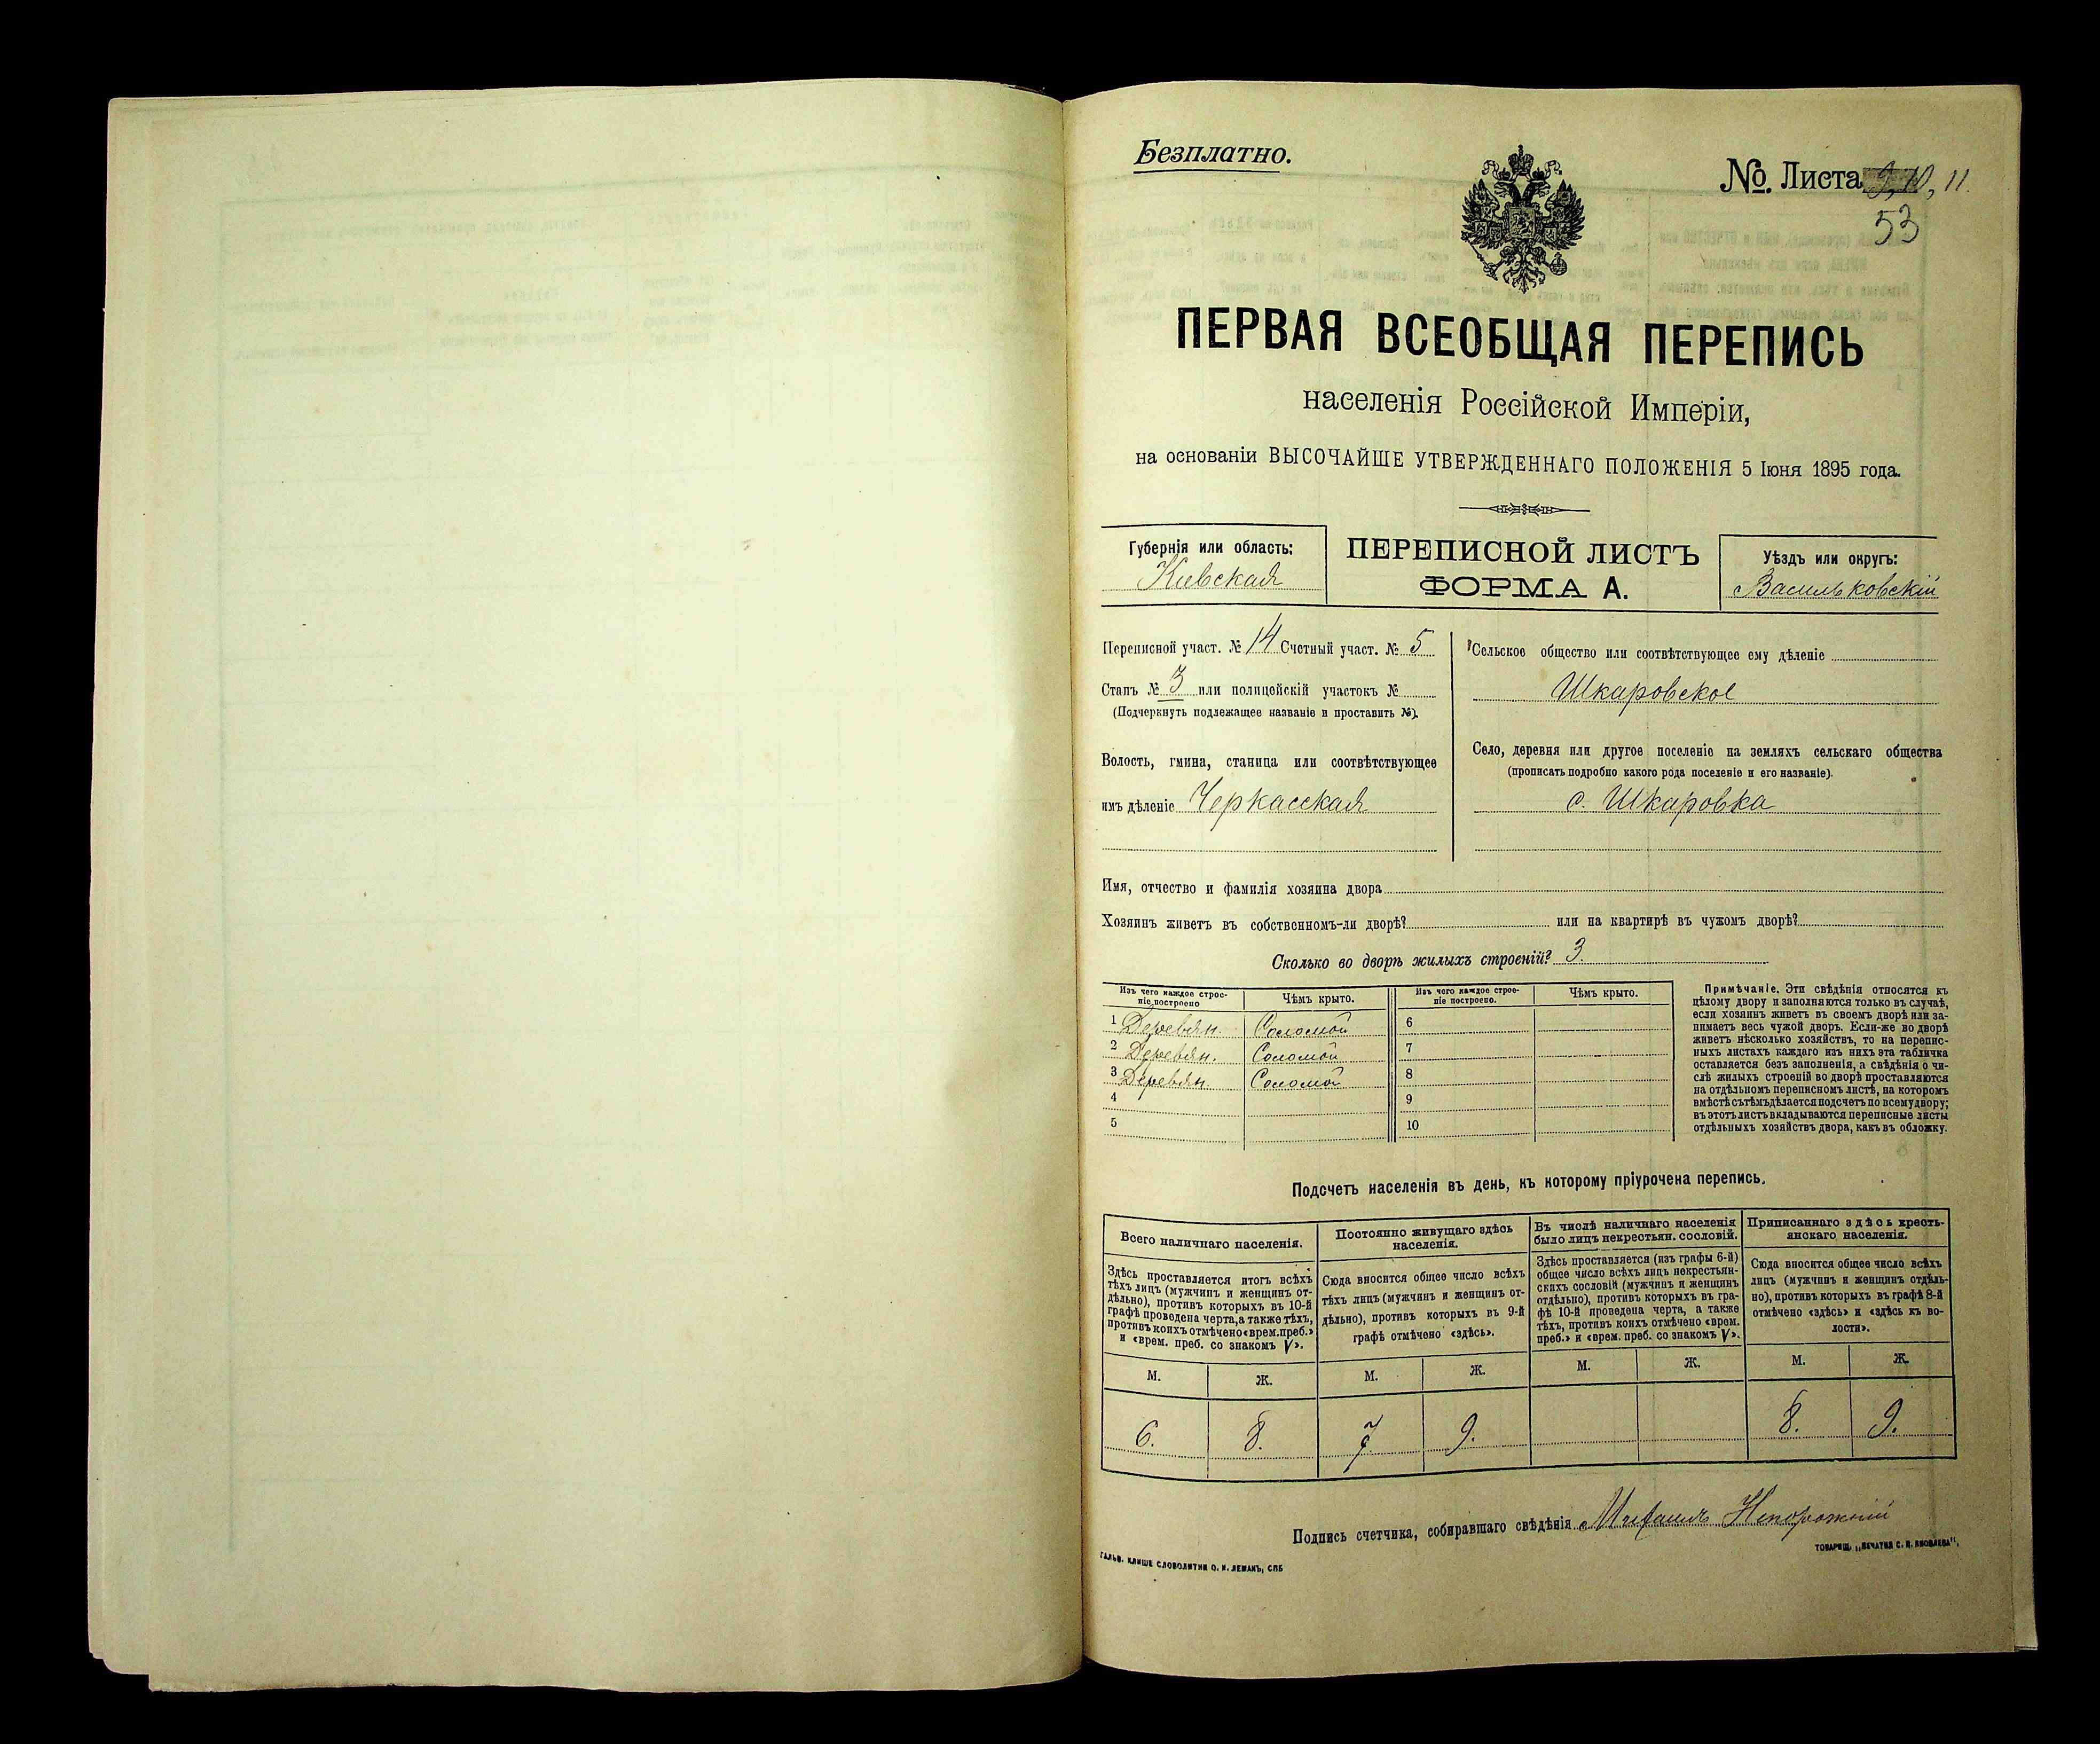 Безплатно.
№. Листа 9, 10, 11.
53
ПЕРВАЯ ВСЕОБЩАЯ ПЕРЕПИСЬ
населенія Россійской Имперіи,
на основаніи ВЫСОЧАЙШЕ УТВЕРЖДЕННАГО ПОЛОЖЕНІЯ 5 Іюня 1895 года.
Губернія или область:
Кіевская
ПЕРЕПИСНОЙ ЛИСТЪ
ФОРМА А.
Уѣздъ или округъ:
Васильковскій
Переписной участ. № 14 Счетный участ. № 5
Станъ № 3 или полицейскій участокъ №
(Подчеркнуть подлежащее названіе и проставить №).
Волость, гмина, станица или соотвѣтствующее
имъ дѣленіе Черкасская
Сельское общество или соотвѣтствующее ему дѣленіе
Шкаровское
Село, деревня или другое поселеніе на земляхъ сельскаго общества
(прописать подробно какого рода поселеніе и его названіе).
с. Шкаровка
Имя, отчество и фамилія хозяина двора
Хозяинъ живетъ въ собственномъ-ли дворѣ? или на квартирѣ въ чужомъ дворѣ?
Сколько во дворѣ жилыхъ строеній? 3.
Изъ чего каждое строе-
ніе построено
Чѣмъ крыто.
Изъ чего каждое строе-
ніе построено.
Чѣмъ крыто.
1 Деревян. Соломой
2 Деревян. Соломой
3 Деревян. Соломой
4
5
6
7
8
9
10
Примѣчаніе. Эти свѣдѣнія относятся къ
цѣлому двору и заполняются только въ случаѣ,
если хозяинъ живетъ въ своемъ дворѣ или за-
нимаетъ весь чужой дворъ. Если-же во дворѣ
живетъ нѣсколько хозяйствъ, то на перепис-
ныхъ листахъ каждаго изъ нихъ эта табличка
оставляется безъ заполненія, а свѣдѣнія о чи-
слѣ жилыхъ строеній во дворѣ проставляются
на отдѣльномъ переписномъ листѣ, на которомъ
вмѣстѣ съ тѣмъ дѣлается подсчетъ по всему двору;
въ этотъ листъ вкладываются переписные листы
отдѣльныхъ хозяйствъ двора, какъ въ обложку.
Подсчетъ населенія въ день, къ которому пріурочена перепись.
Всего наличнаго населенія.
Здѣсь проставляется итогъ всѣхъ
тѣхъ лицъ (мужчинъ и женщинъ от-
дѣльно), противъ которыхъ въ 10-й
графѣ проведена черта, а также тѣхъ,
противъ коихъ отмѣчено «врем. преб.»
и «врем. преб. со знакомъ V».
Постоянно живущаго здѣсь
населенія.
Сюда вносится общее число всѣхъ
тѣхъ лицъ (мужчинъ и женщинъ от-
дѣльно), противъ которыхъ въ 9-й
графѣ отмѣчено «здѣсь».
Въ числѣ наличнаго населенія
было лицъ некрестьян. сословій.
Здѣсь проставляется (изъ графы 6-й)
общее число всѣхъ лицъ некрестьян-
скихъ сословій (мужчинъ и женщинъ
отдѣльно), противъ которыхъ въ гра-
фѣ 10-й проведена черта, а также
тѣхъ, противъ коихъ отмѣчено «врем.
преб.» и «врем. преб. со знакомъ V».
Приписаннаго здѣсь кресть-
янскаго населенія.
Сюда вносится общее число всѣхъ
лицъ (мужчинъ и женщинъ отдѣль-
но), противъ которыхъ въ графѣ 8-й
отмѣчено «здѣсь» и «здѣсь къ во-
лости».
М. Ж. М. Ж. М. Ж. М. Ж.
6. 8. 7 9. 8. 9.
Подпись счетчика, собиравшаго свѣдѣнія Михаилъ Непорожній
ГАЛЬВ. КЛИШЕ СЛОВОЛИТНИ О. И. ЛЕМАНЪ, СПБ
ТОВАРИЩ. „ПЕЧАТНЯ С. П. ЯКОВЛЕВА",